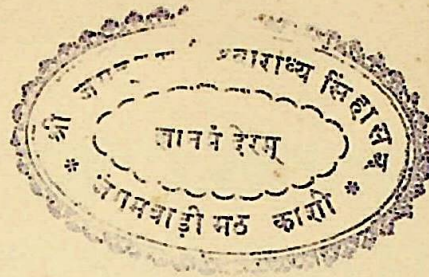 श्री जगद्गुरु श्वाराध्य सिंहासन
ज्ञानमंदिरम्
* जंगमवाड़ी मठ काशी *